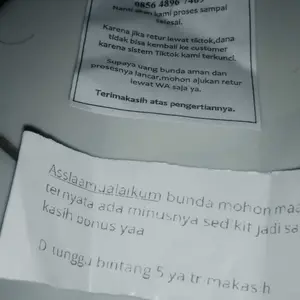 0856 4896 7489
kami proses sampai
selesai.
Karena jika retur lewat tiktok,dana
tidak bisa kembali ke custumer
karena sistem Tiktok kami terkunci.
Supaya uang bunda aman dan
prosesnya lancar,mohon ajukan retur
lewat WA saja ya.
Terimakasih atas pengertiannya.
Asslaamualaikum bunda mohon maa
ternyata ada minusnya sedikit jadi sa
kasih bonus yaa
D tunggu bintang 5 ya trimakasih